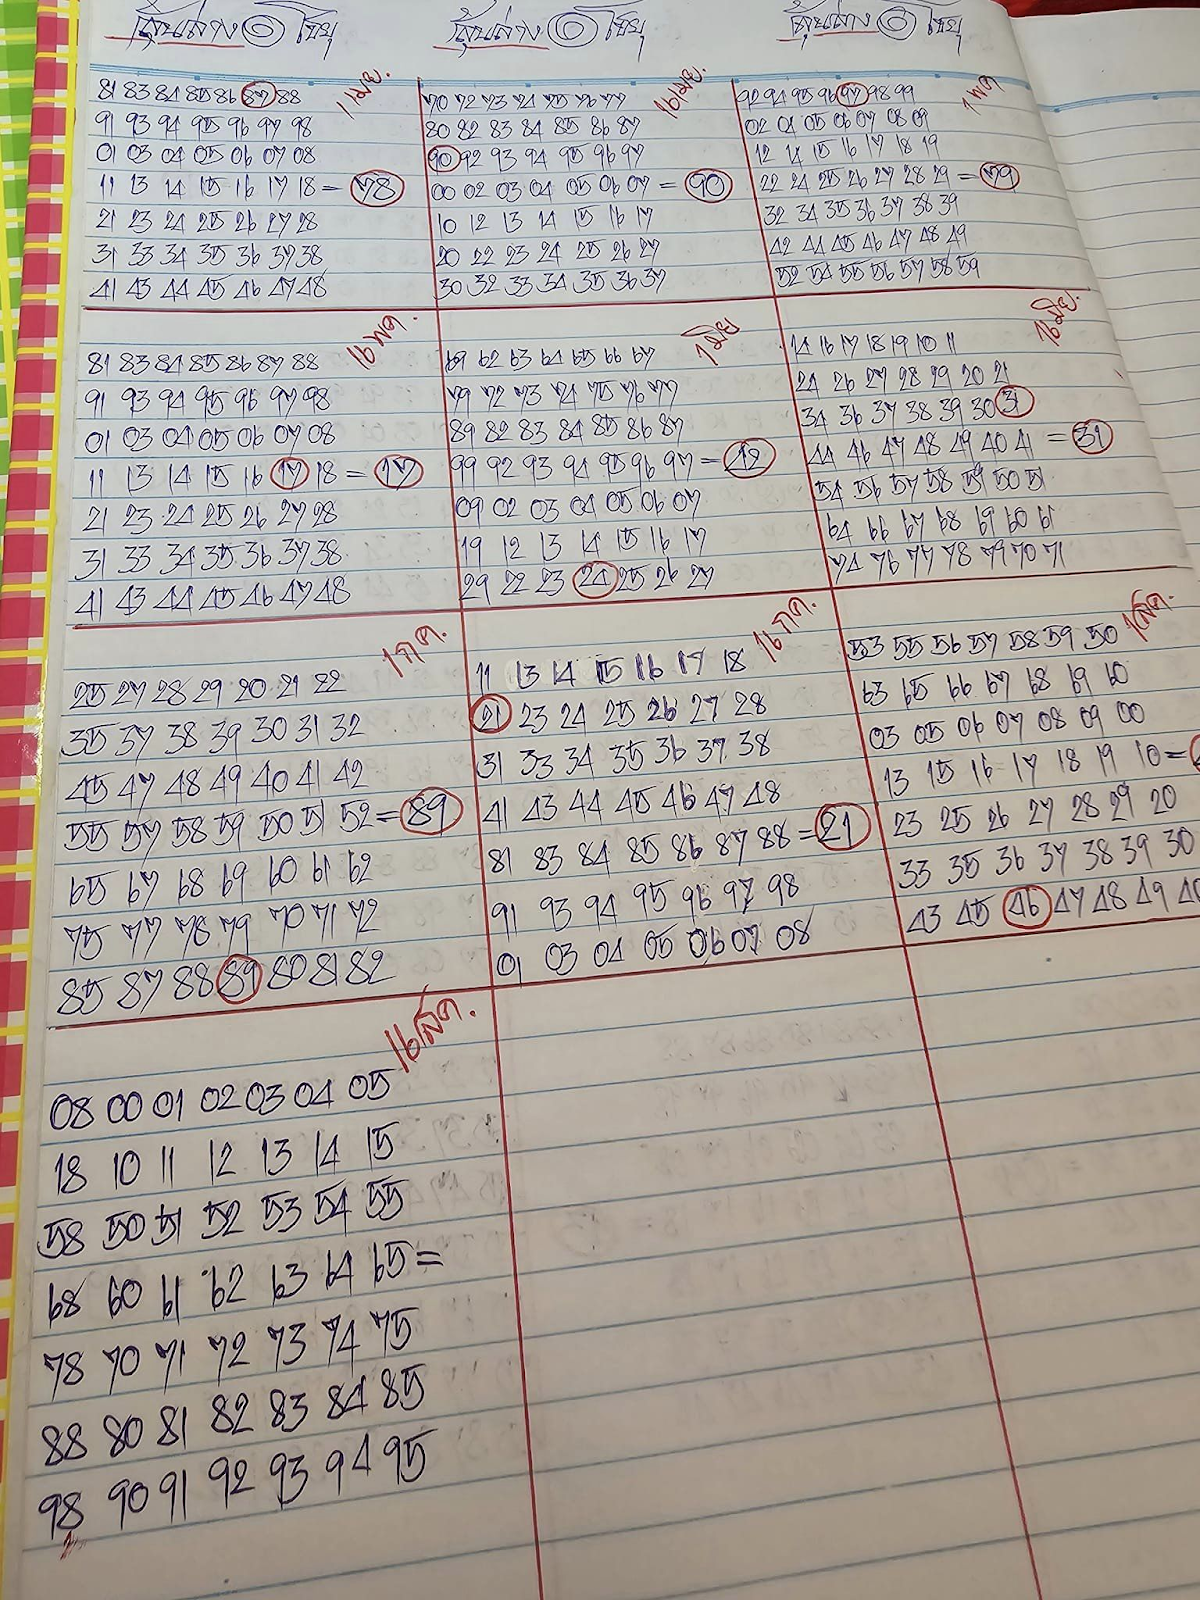 ลุ้นล่าง
ลุ้นล่าง
ลุ้นล่าง
1 เมย.
81 83 84 85 86 87 88
91 93 94 95 96 97 98
01 03 04 05 06 07 08
11 13 14 15 16 17 18 = 78
21 23 24 25 26 27 28
31 33 34 35 36 37 38
41 43 44 45 46 47 48
16 เมย.
70 72 73 74 75 76 77
80 82 83 84 85 86 87
90 92 93 94 95 96 97
00 02 03 04 05 06 07 = 90
10 12 13 14 15 16 17
20 22 23 24 25 26 27
30 32 33 34 35 36 37
1 พค
92 94 95 96 97 98 99
02 04 05 06 07 08 09
12 14 15 16 17 18 19
22 24 25 26 27 28 29 = 79
32 34 35 36 37 38 39
42 44 45 46 47 48 49
52 54 55 56 57 58 59
16 พค.
81 83 84 85 86 87 88
91 93 94 95 96 97 98
01 03 04 05 06 07 08
11 13 14 15 16 17 18 = 17
21 23 24 25 26 27 28
31 33 34 35 36 37 38
41 43 44 45 46 47 48
1 มิย
69 62 63 64 65 66 67
79 72 73 74 75 76 77
89 82 83 84 85 86 87
99 92 93 94 95 96 97 = 42
09 02 03 04 05 06 07
19 12 13 14 15 16 17
29 22 23 24 25 26 27
16 มิย.
14 16 17 18 19 10 11
24 26 27 28 29 20 21
34 36 37 38 39 30 31
44 46 47 48 49 40 41 = 31
54 56 57 58 59 50 51
64 66 67 68 69 60 61
74 76 77 78 79 70 71
1 กค.
25 27 28 29 20 21 22
35 37 38 39 30 31 32
45 47 48 49 40 41 42
55 57 58 59 50 51 52 = 89
65 67 68 69 60 61 62
75 77 78 79 70 71 72
85 87 88 89 80 81 82
16 กค.
11 13 14 15 16 17 18
21 23 24 25 26 27 28
31 33 34 35 36 37 38
41 43 44 45 46 47 48
81 83 84 85 86 87 88 = 21
91 93 94 95 96 97 98
01 03 04 05 06 07 08
1 สค.
53 55 56 57 58 59 50
63 65 66 67 68 69 60
03 05 06 07 08 09 00
13 15 16 17 18 19 10 =
23 25 26 27 28 29 20
33 35 36 37 38 39 30
43 45 46 47 48 49 40
16 สค.
08 00 01 02 03 04 05
18 10 11 12 13 14 15
58 50 51 52 53 54 55
68 60 61 62 63 64 65 =
78 70 71 72 73 74 75
88 80 81 82 83 84 85
98 90 91 92 93 94 95